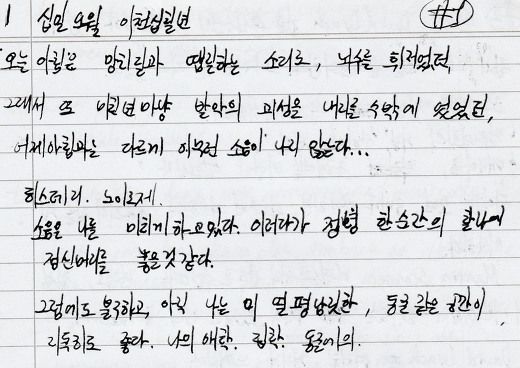 1 십일 오월 이천십칠년 #1
오늘 아침은 망치질과 땜질하는 소리로, 뇌수를 휘저었던
그래서 또 미친년마냥 발악의 괴성을 내리를 수밖에 없었던,
어제아침과는 다르게 아무런 소음이 나지 않는다...
히스테리. 노이로제.
소음은 나를 미치게 하고 있다. 이러다가 정말 한순간의 찰나에
정신머리를 놓을것 같다.
그럼에도 불구하고, 아직 나는 이 열평남짓한, 동굴 같은 공간이
지독히도 좋다. 나의 애착. 집착. 동굴에의.